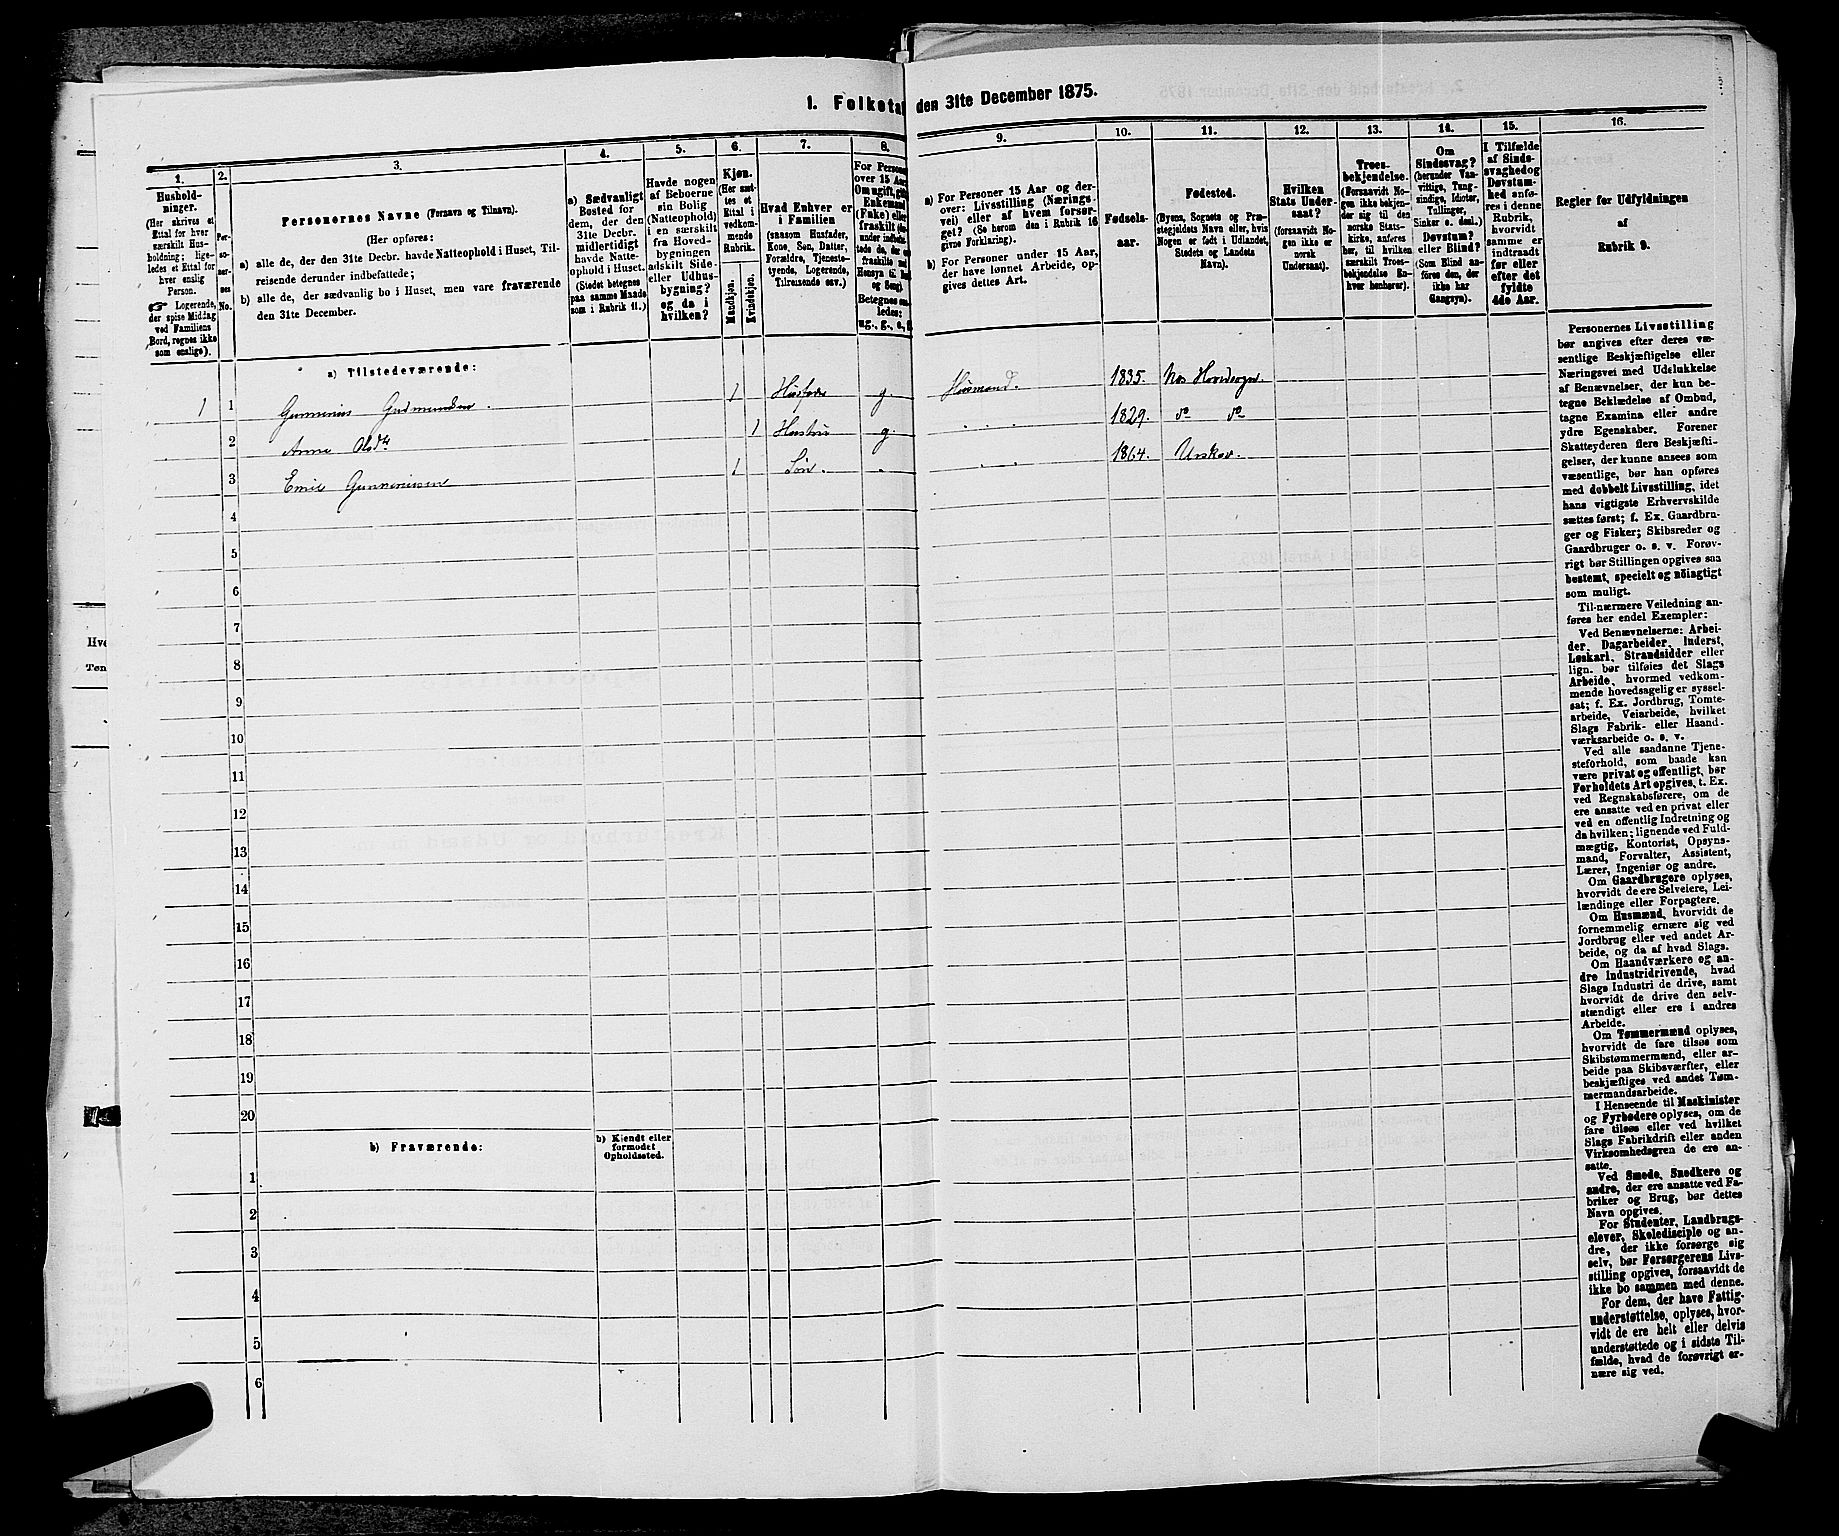 1. Folketal den 31te December 1875.
1. 2. 3. 4. 5. 6. 7. 8. 9. 10. 11. 12. 13. 14. 15. 16.
Hushold-
ninger.
(Her skrives et
Ettal for hver
særskilt Hus-
holdning; lige-
ledes et Ettal for
hver enslig
Person.
☞ Logerende,
der spise Middag
ved Familiens
Bord, regnes ikke
som enslige).
Per-
so-
ner-
nes
No.
Personernes Navne (Fornavn og Tilnavn).
(Her opføres:
a) alle de, der den 31te Decbr. havde Natteophold i Huset, Til-
reisende derunder indbefattede;
b) alle de, der sædvanlig bo i Huset, men vare fraværende
den 31te December.
a) Sædvanligt
Bosted for
dem, der den
31te Decbr.
midlertidigt
havde Natte-
ophold i Huset.
(Stedet betegnes
paa samme Maade
som i Rubrik 11.)
Havde nogen
af Beboerne
sin Bolig
(Natteophold)
i en særskilt
fra Hoved-
bygningen
adskilt Side-
eller Udhus-
bygning?
og da i
hvilken?
Kjøn.
(Her sæt-
tes et
Ettal i
vedkom-
mende
Rubrik.
Mandkjøn.
Kvindekjøn.
Hvad Enhver er
i Familien
(saasom Husfader,
Kone, Søn, Datter,
Forældre, Tjeneste-
tyende, Logerende,
Tilreisende osv.)
For Personer
over 15 Aar:
Om ugift, gift,
Enkemand
(Enke) eller
fraskilt
Betegnes saa-
ledes:
ug., g., e., f.
a) For Personer 15 Aar og der-
over: Livsstilling (Nærings-
vei) eller af hvem forsør-
get? (Se herom den i Rubrik 16
givne Forklaring).
b) For Personer under 15 Aar,
der have lønnet Arbeide, op-
gives dettes Art.
Fødsels-
aar.
Fødested.
(Byens, Sognets og Præ-
stegjeldets Navn eller, hvis
Nogen er født i Udlandet,
Stedets og Landets
Navn).
Hvilken
Stats Under-
saat?
(forsaavidt No-
gen ikke er
norsk
Undersaat).
Troes-
bekjendelse.
(Forsaavidt No-
gen ikke bekjen-
der sig til den
norske Stats-
kirke, anføres
her, til hvilken
særskilt Troes-
bekjendelse En-
hver henhører).
Om
Sindssvag?
(herunder Van-
vittige, Tung-
sindige, Idioter,
Tullinger,
Sinker o. desl.)
Døvstum?
eller Blind?
(Som Blind an-
føres den, der
ikke har
Gangsyn).
I Tilfælde
af Sinds-
svaghed og
Døvstum-
hed anfø-
res i denne
Rubrik,
hvorvidt
samme er
indtraadt
før eller
efter det
fyldte
4de Aar.
Regler for Udfyldningen
af
Rubrik 9.
a) Tilstedeværende:
1 1 Gunnerius Gudmundsen. 1 Husfader g. Husmand. 1835. Nes Hovedsogn.
2 Anne Olsdtr 1 Hustru g 1829. do do
3 Emil Gunneriusen 1 Søn. 1864. Urskov.
4
5
6
7
8
9
10
11
12
13
14
15
16
17
18
19
20
b) Fraværende:
b) Kjendt eller
formodet
Opholdssted.
1
2
3
4
5
6
Personernes Livsstilling
bør angives efter deres væ-
sentlige Beskjæftigelse eller
Næringsvei med Udelukkelse
af Benævnelser, der kun be-
tegne Beklædelse af Ombud,
tagne Examina eller andre
ydre Egenskaber. Forener
Skatteyderen flere Beskjæfti-
gelser, der kunne ansees som
væsentlige, bør han opføres
med dobbelt Livsstilling, idet
hans vigtigste Erhvervskilde
sættes først; f. Ex. Gaardbru-
ger og Fisker; Skibsreder og
Gaardbruger o. s. v. Forøv-
rigt bør Stillingen opgives saa
bestemt, specielt og nöiagtigt
som muligt.
Til nærmere Veiledning an-
føres her endel Exempler:
Ved Benævnelserne: Arbei-
der, Dagarbeider, Inderst,
Løskarl, Strandsidder eller
lign. bør tilføies det Slags
Arbeide, hvormed vedkom-
mende hovedsagelig er syssel-
sat; f. Ex. Jordbrug, Tomte-
arbeide, Veiarbeide, hvilket
Slags Fabrik- eller Haand-
værksarbeide o. s. v.
Ved alle saadanne Tjene-
steforhold, som baade kan
være privat og offentligt, bør
Forholdets Art opgives, t. Ex.
ved Regnskabsførere, om de
ere ansatte ved en privat eller
ved en offentlig Indretning og
da hvilken; lignende ved Fuld-
mægtig, Kontorist, Opsyns-
mand, Forvalter, Assistent,
Lærer, Ingeniør og andre.
Om Gaardbrugere oplyses,
hvorvidt de ere Selveiere, Lei-
lændinge eller Forpagtere.
Om Husmænd, hvorvidt de
fornemmelig ernære sig ved
Jordbrug eller ved andet Ar-
beide, og da af hvad Slags.
Om Haandværkere og an-
dre Industridrivende, hvad
Slags Industri de drive, samt
hvorvidt de drive den selv-
stændigt eller ere i andres
Arbeide.
Om Tømmermænd oplyses,
hvorvidt de fare tilsøs som
Skibstømmermænd, eller ar-
beide paa Skibsværfter, eller
beskjæftiges ved andet Tøm-
mermandsarbeide.
I Henseende til Maskinister
og Fyrbødere oplyses, om de
fare tilsøs eller ved hvilket
Slags Fabrikdrift eller anden
Virksomhedsgren de ere an-
satte.
Ved Smede, Snedkere og
andre, der ere ansatte ved Fa-
briker og Brug, bør dettes
Navn opgives.
For Studenter, Landbrugs-
elever, Skoledisciple og an-
dre, der ikke forsørge sig
selv, bør Forsørgerens Livs-
stilling opgives, forsaavidt de
ikke bo sammen med denne.
For dem, der have Fattig-
understøttelse, oplyses, hvor-
vidt de ere helt eller delvis
understøttede og i sidste Til-
fælde, hvad de forøvrigt er-
nære sig ved.